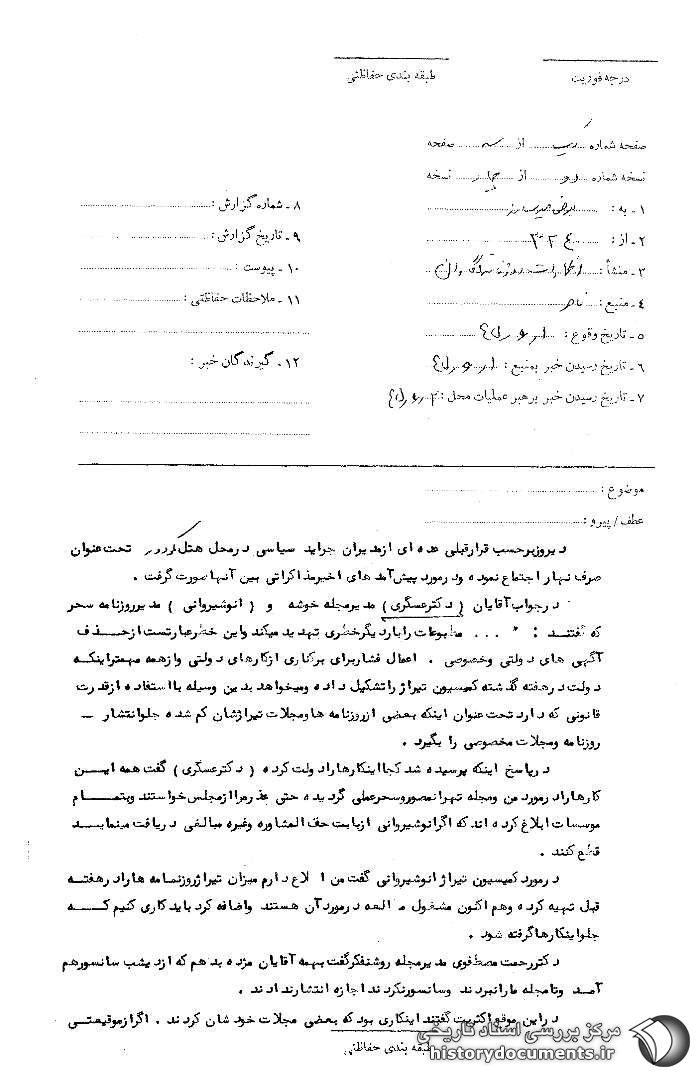 درجه فوریت
طبقه بندی حفاظتی
صفحه شماره یک از سه صفحه
نسخه شماره دو از چهار نسخه
۱ـ به :
۲ـ از : ۳۲۴
۳ـ منشأ :
۴ـ منبع : ناصر
۵ـ تاریخ وقوع :
۶ـ تاریخ رسیدن خبر بمنبع :
۷ـ تاریخ رسیدن خبر برهبر عملیات محل :
۸ـ شماره گزارش :
۹ـ تاریخ گزارش :
۱۰ـ پیوست :
۱۱ـ ملاحظات حفاظتی :
۱۲ـ گیرندگان خبر :
موضوع :
عطف/پیرو :
دیروز برحسب قرارقبلی عده ای ازمدیران جراید سیاسی درمحل هتل تحت عنوان
صرف نهار اجتماع نموده ودرمورد پیش آمد های اخیرمذاکراتی بین آنهاصورت گرفت .
درجواب آقایان ( دکترعسگری ) مدیرمجله خوشه و ( انوشیروانی ) مدیرروزنامه سحر
که گفتند : " ... مطبوعات راباردیگرخطری تهدید میکند واین خطرعبارتست ازحذف
آگهی های دولتی وخصوصی . اعمال فشاربرای برکناری ازکارهای دولتی وازهمه مهمتراینکه
دولت درهفته گذشته کمیسیون تیراژ راتشکیل داده ومیخواهد بدین وسیله بااستفاده ازقدرت
قانونی که دارد تحت عنوان اینکه بعضی ازروزنامه هاومجلات تیراژشان کم شده جلوانتشار ـ
روزنامه ومجلات مخصوصی را بگیرد .
درپاسخ اینکه پرسیده شد کجااینکارهاراد ولت کرده ( دکترعسگری ) گفت همه این
کارهارادرمورد من ومجله تهرانمصوروسحرعملی گردیده حتی عذرمراازمجلس خواستند وبتمام
موسسات ابلاغ کرده اند که اگرانوشیروانی ازبابت حق المشاوره وغیره مبالغی دریافت مینماید
قطع کنند .
درمورد کمیسیون تیراژ انوشیروانی گفت من اطلاع دارم میزان تیراژروزنامه هارادرهفته
قبل تهیه کرده وهم اکنون مشغول مطالعه درمورد آن هستند واضافه کرد باید کاری کنیم که
جلواینکارهاگرفته شود .
دکتررحمت مصطفوی مدیرمجله روشنفکرگفت بهمه آقایان مژده بدهم که ازدیشب سانسورهم
آمد وتامجله مارانبردند وسانسورنکردند اجازه انتشارندادند .
دراین موقع اکثریت گفتند اینکاری بود که بعضی مجلات خودشان کردند . اگرازموقیعتی
طبقه بندی حفاظتی
مرکز بررسی اسناد تاریخی
historydocuments.ir